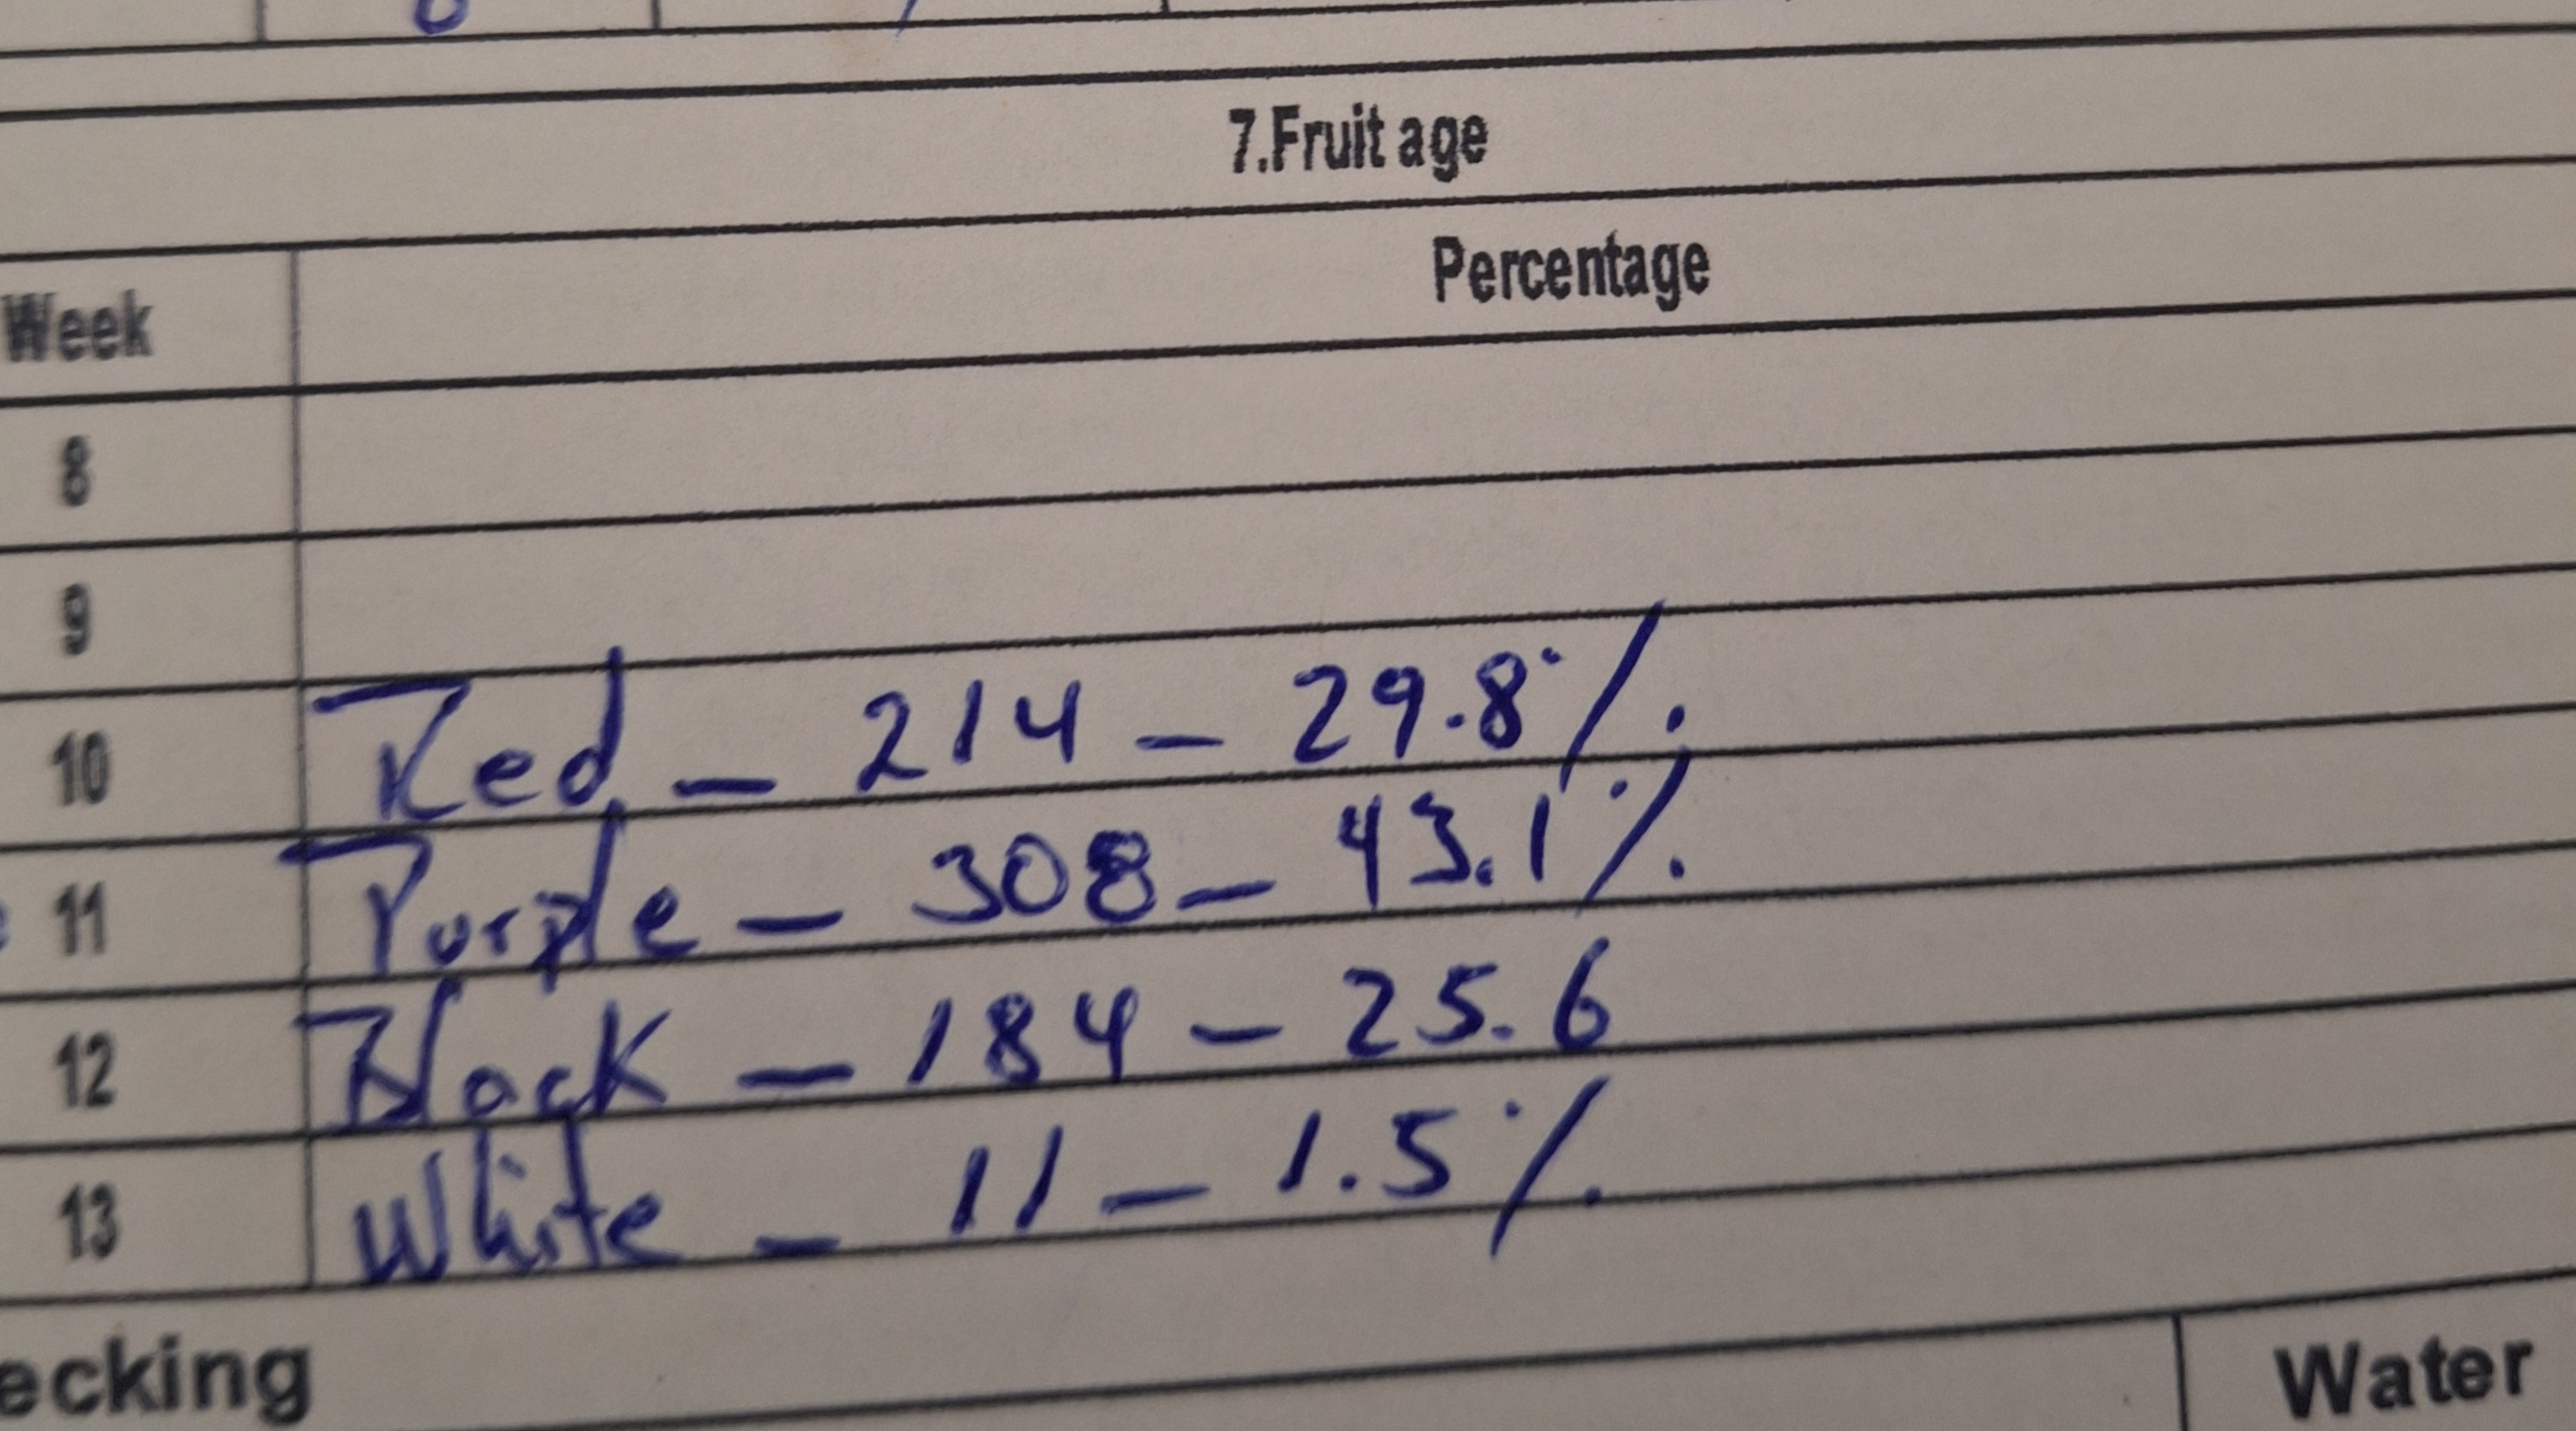 7.Fruit age
Week Percentage
8
9
10 Red - 214 - 29.8%
11 Purple - 308 - 43.1%
12 Black - 184 - 25.6
13 White - 11 - 1.5%
ecking Water